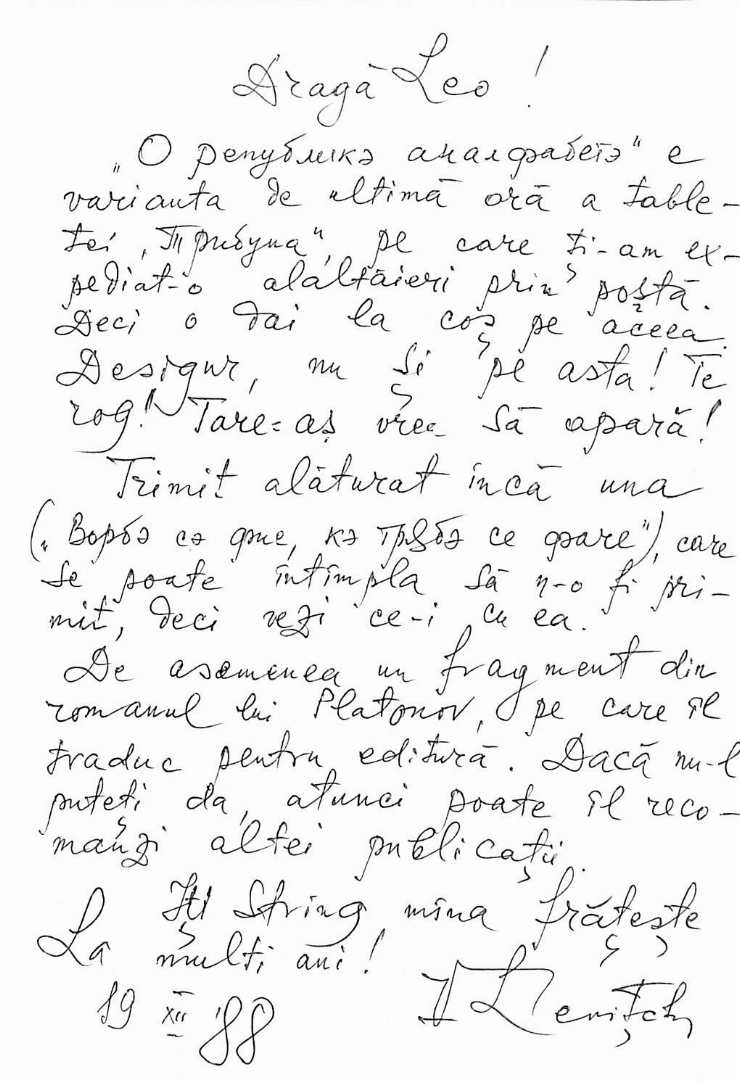 Dragă Leo!
„О републикэ аналфабетэ" e
varianta de ultimă oră a table-
tei „Трибуна", pe care ți-am ex-
pediat-o alaltăieri prin poștă.
Deci o dai la coș pe aceea.
Desigur, nu și pe asta! Te
rog! Tare-aș vrea să apară!
Trimit alăturat încă una
(„Ворбэ сэ фие, кэ трябэ се фаре"), care
se poate întîmpla să n-o fi pri-
mit, deci vezi ce-i cu ea.
De asemenea un fragment din
romanul lui Platonov, pe care îl
traduc pentru editură. Dacă nu-l
puteți da, atunci poate îl reco-
manzi altei publicații.
Îți string mîna frățește
La mulți ani!
19 XII '88